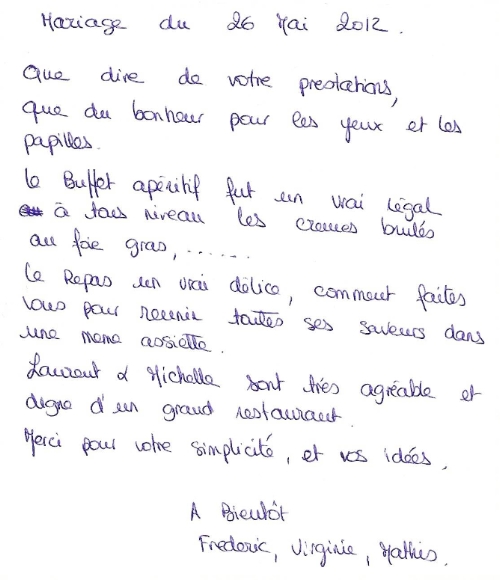 Mariage du 26 Mai 2012.
Que dire de votre prestations,
que du bonheur pour les yeux et les
papilles.
Le Buffet apéritif fut un vrai légal
à tous niveau les cremes brulés
au foie gras, .......
Le Repas un vrai délice, comment faites
vous pour reunir toutes ses saveurs dans
une meme assiette.
Laurent & Michelle sont très agréable et
digne d'un grand restaurant.
Merci pour votre simplicité, et vos idées.
A Bientôt
Frederic, Virginie, Mathis.